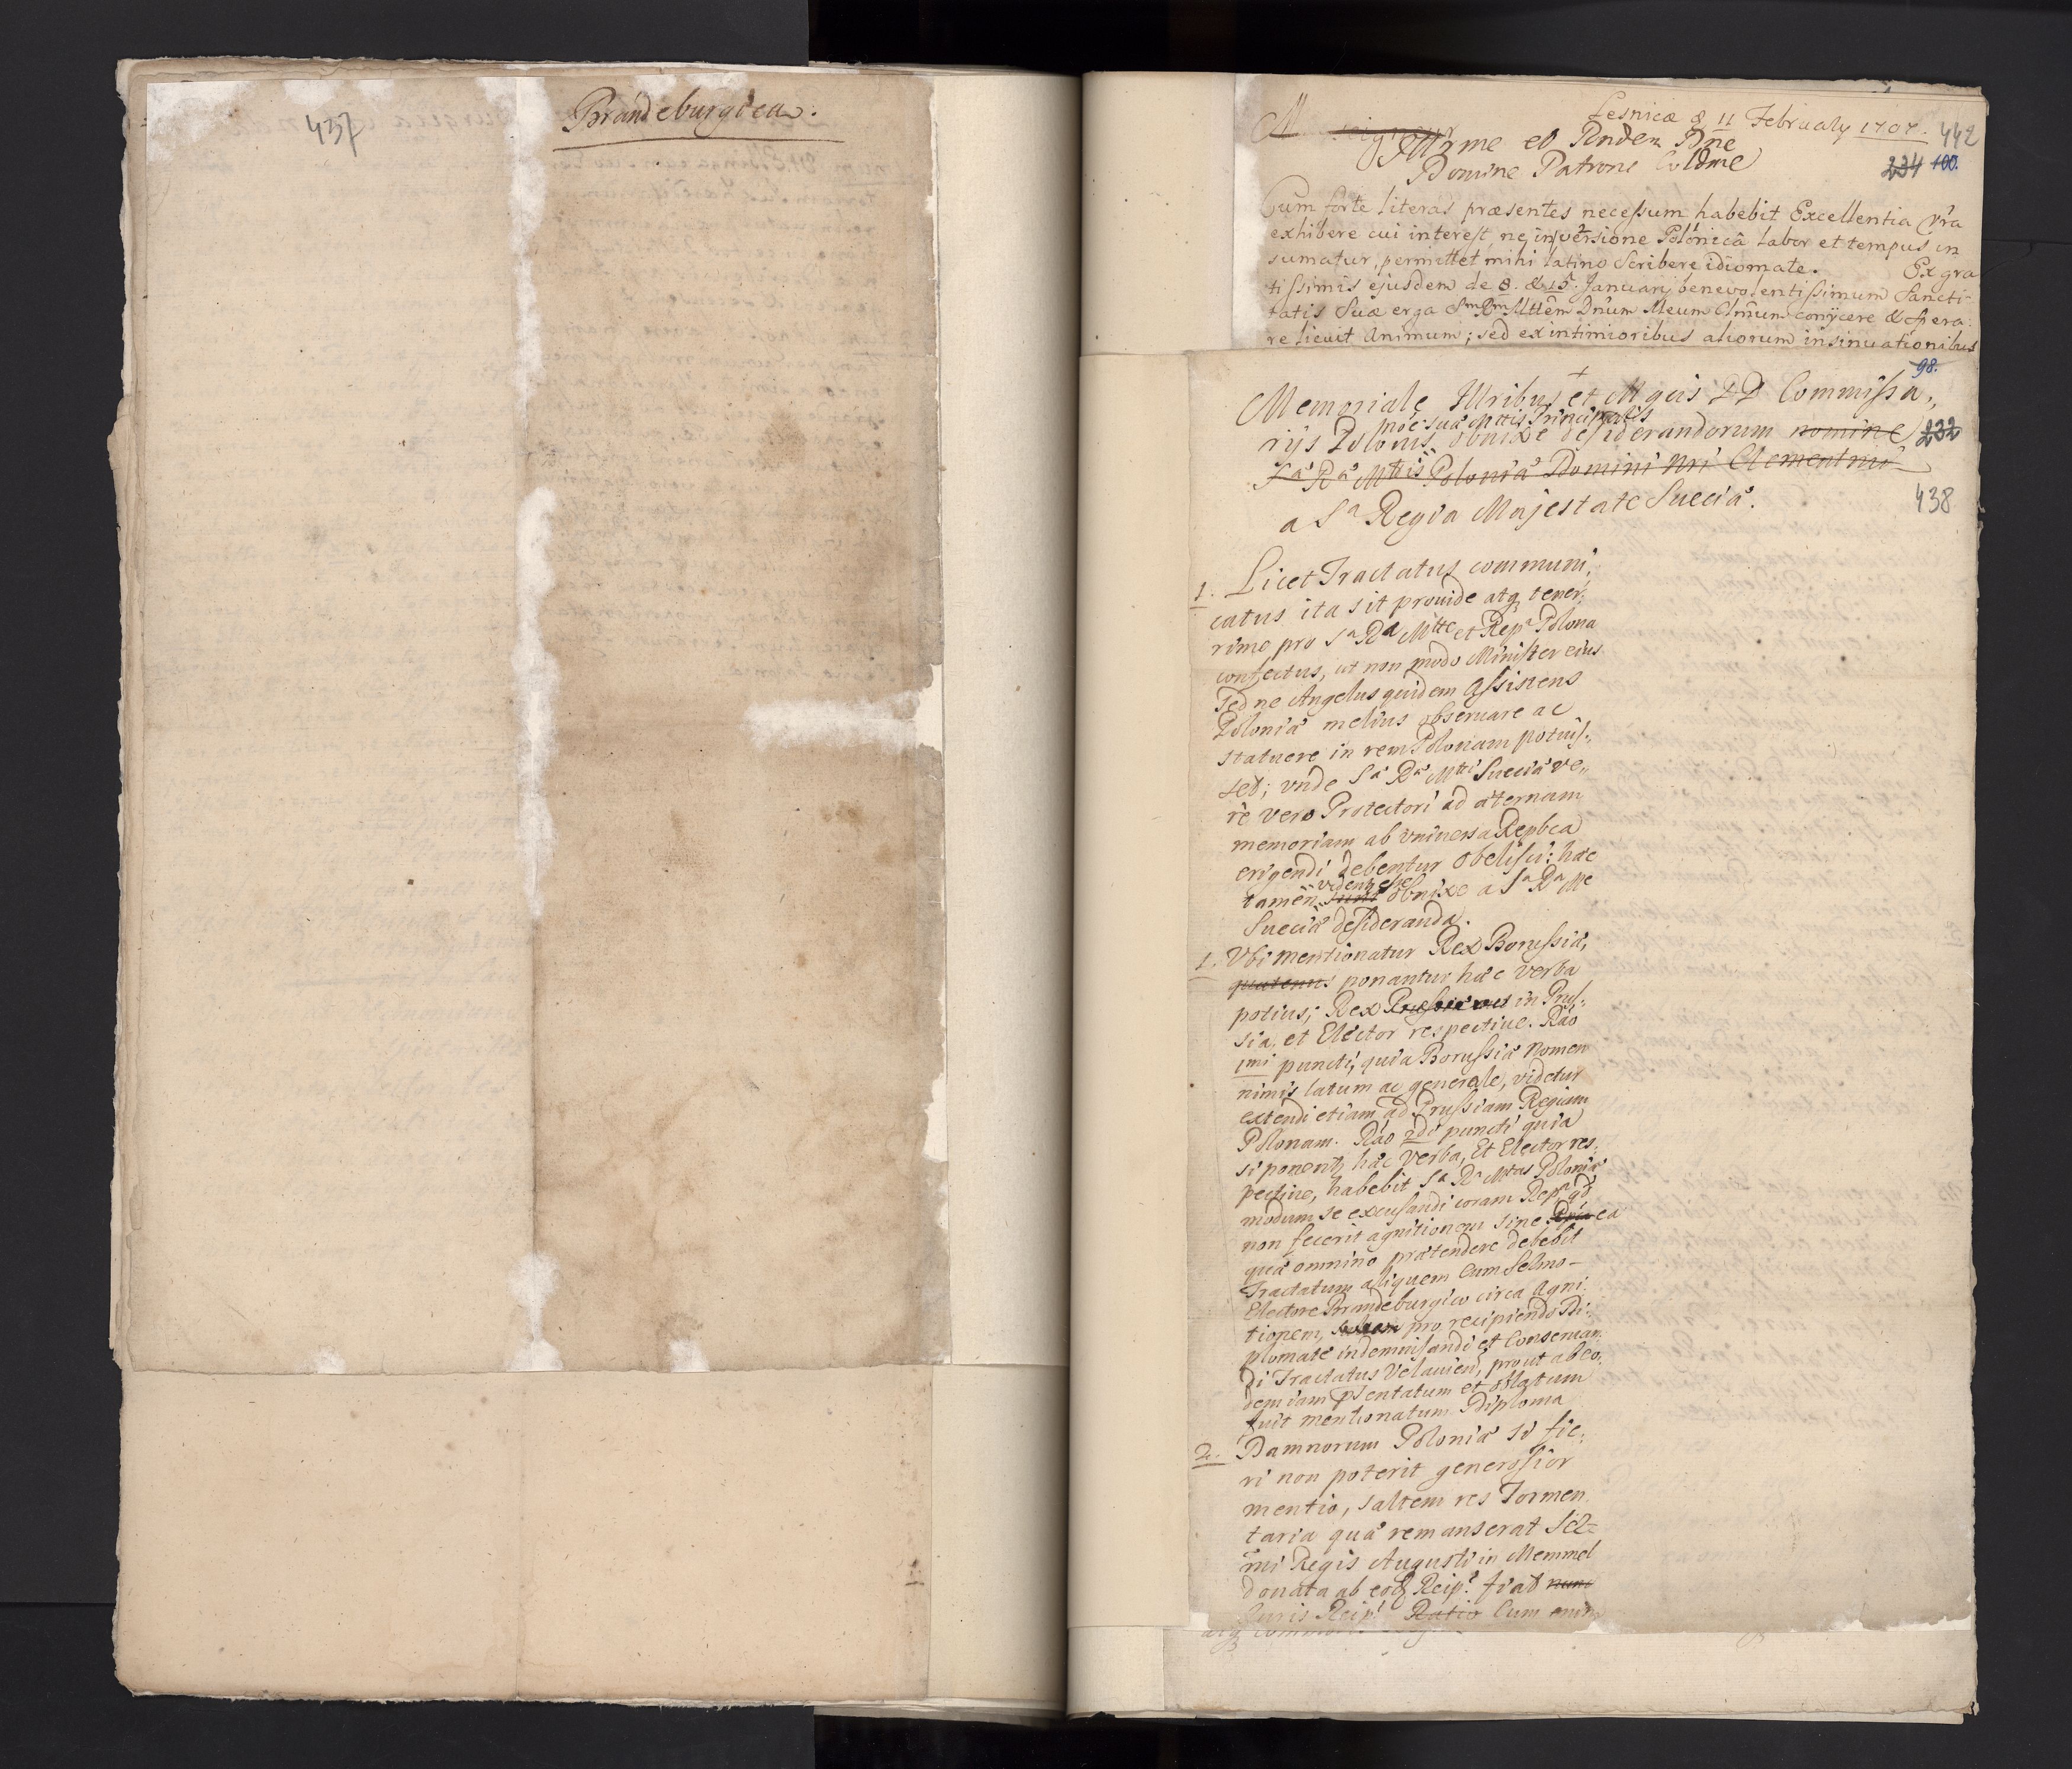 437
Brandeburgica.
Lesnicæ d 11 February 1707.
442
Illrme et Rndem Dne
234 100.
Domine Patrone Coldme
Cum forte literas præsentes necessum habebit Excellentia Vra
exhibere cui interest, ne in versione Polonicâ labor et tempus in
sumatur, permittet mihi latino scribere idiomate. Ex gra
tissimis ejusdem de 8. & 15. January benevolentissimum Sancti-
tatis Suæ erga Dnum Meum Clmum conijcere & spera-
re licuit Animum; sed ex intimioribus aliorum insinuationibus
98.
Memoriale Illribus et Mgcis DD Commissa,,
noe suæ Mttis Principalis
rijs Polonis obnixe desiderandorum nomine
232
Sæ Ræ Mttis Poloniæ Domini Nri Clementmi
438
a Sa Regia Majestate Sueciæ.
1. Licet Tractatus communi,
catus ita sit provide atq tener,
rime pro Sa Ra Mtte et Repa Polona
confectus, ut non modo Minister eius
sed ne Angelus quidem Assistens
Poloniæ melius observare ac
statuere in rem Polonam potuis,,
set; unde Sæ Ræ Mtti Sueciæ ve,,
re vero Protectori ad æternam
memoriam ab universa Repbca
erigendi debentur Obelisci: hæc
videntur esse
tamen sunt obnixe a Sa Ra Mte
Sueciæ desideranda.
1. Ubi mentionatur Rex Borussiæ,
quatenus ponantur hæc verba
potius; Rex in Prus,,
sia, et Elector respective. Rao
1mi puncti, quia Borussiæ Nomen
nimis latum ac generale, videtur
extendi etiam ad Prussiam Regiam
Polonam. Rao 2di puncti quia
si ponentr hæc verba, Et Elector res,
pective, habebit Sa Ra Mtas Poloniæ
modum se excusandi coram Repa qd
non fecerit agnitionem sine ea
quæ omnino prætendere debebit
Tractatum aliquem cum Selmo-
Electore Brandeburgico circa Agni,
tionem, pro recipiendo Di,
plomate indemnisandi et conservan,
di Tractatus Velavien, prout ab eo,
dem iam psentatum et oblatum
fuit mentionatum Diploma
2. Damnorum Poloniæ si fie,
ri non poterit generosior
mentio, saltem res Tormen,
taria quæ remanserat Sel=
mi Regis Augusti in Memmel
donata ab eod Reip. fiat nunc
Juris Reip. Ratio Cum enim